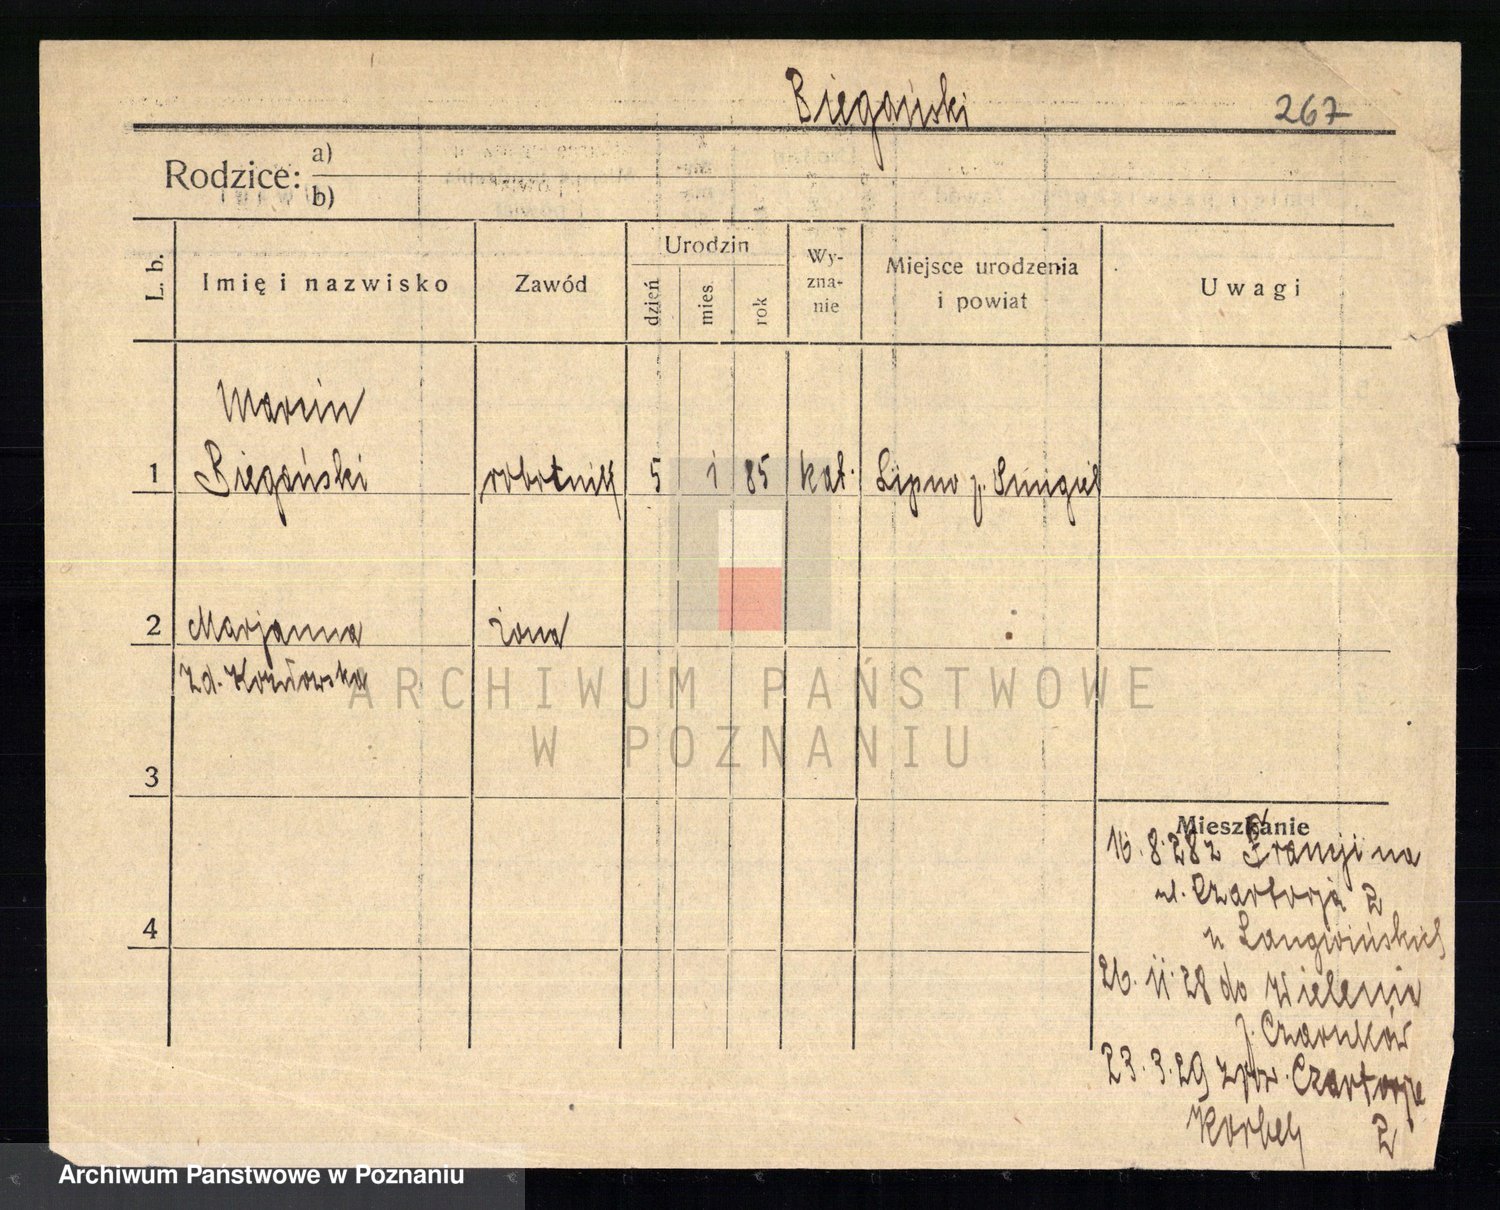 Biegański
267
Rodzice: a)
b)
L. b.
Imię i nazwisko
Zawód
Urodzin
dzień
mies.
rok
Wy-
zna-
nie
Miejsce urodzenia
i powiat
Uwagi
Marcin
1 Biegański robotnik 5 1 85 kat. Lipno p. Śmigiel
2 Marjanna żona
zd. Kozłowska
ARCHIWUM PAŃSTWOWE
W POZNANIU
3
Mieszkanie
16.8.28 z Francji na
ul. Czartorja 2
4
u Langwińskich
26.11.28 do Wielenia
p. Czarnków
23.3.29 zpow. Czartorja
2
Archiwum Państwowe w Poznaniu